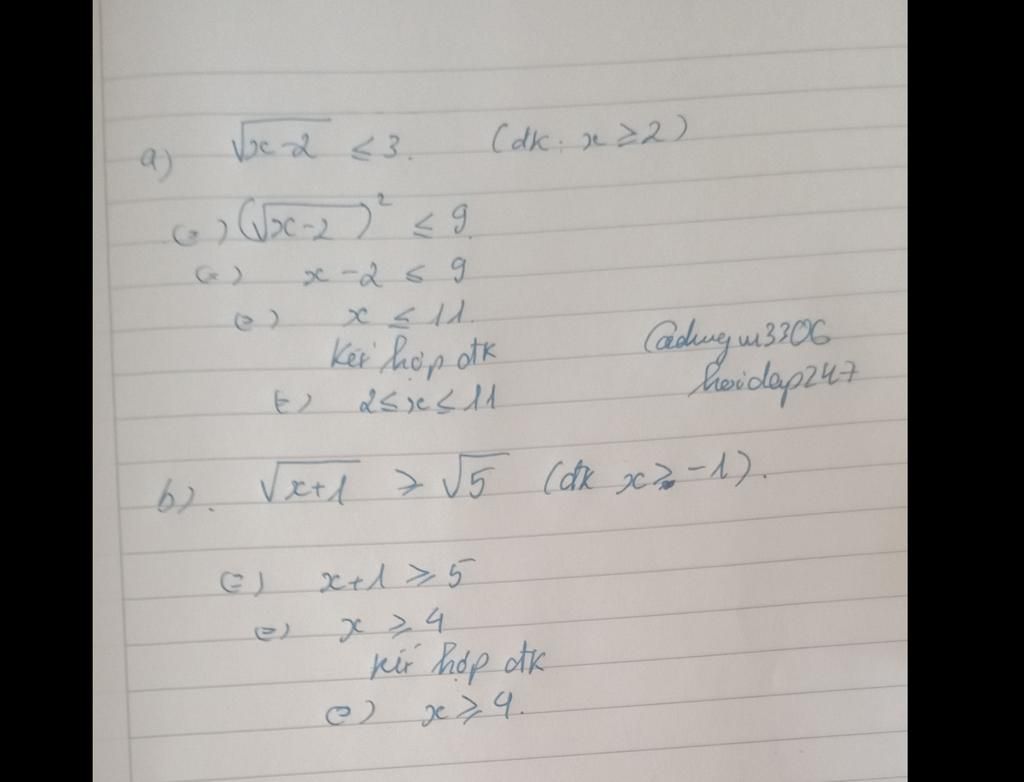 a) √x-2 ≤ 3. (dk: x ≥ 2)
(=) (√x-2)² ≤ 9
(=) x - 2 ≤ 9
(=) x ≤ 11.
Kết hợp đk
(=) 2 ≤ x ≤ 11
@dungvu3306
hoidap247
b). √x+1 ≥ √5 (đk x ≥ -1).
(=) x+1 ≥ 5
(=) x ≥ 4
Kết hợp đk
(=) x ≥ 4.